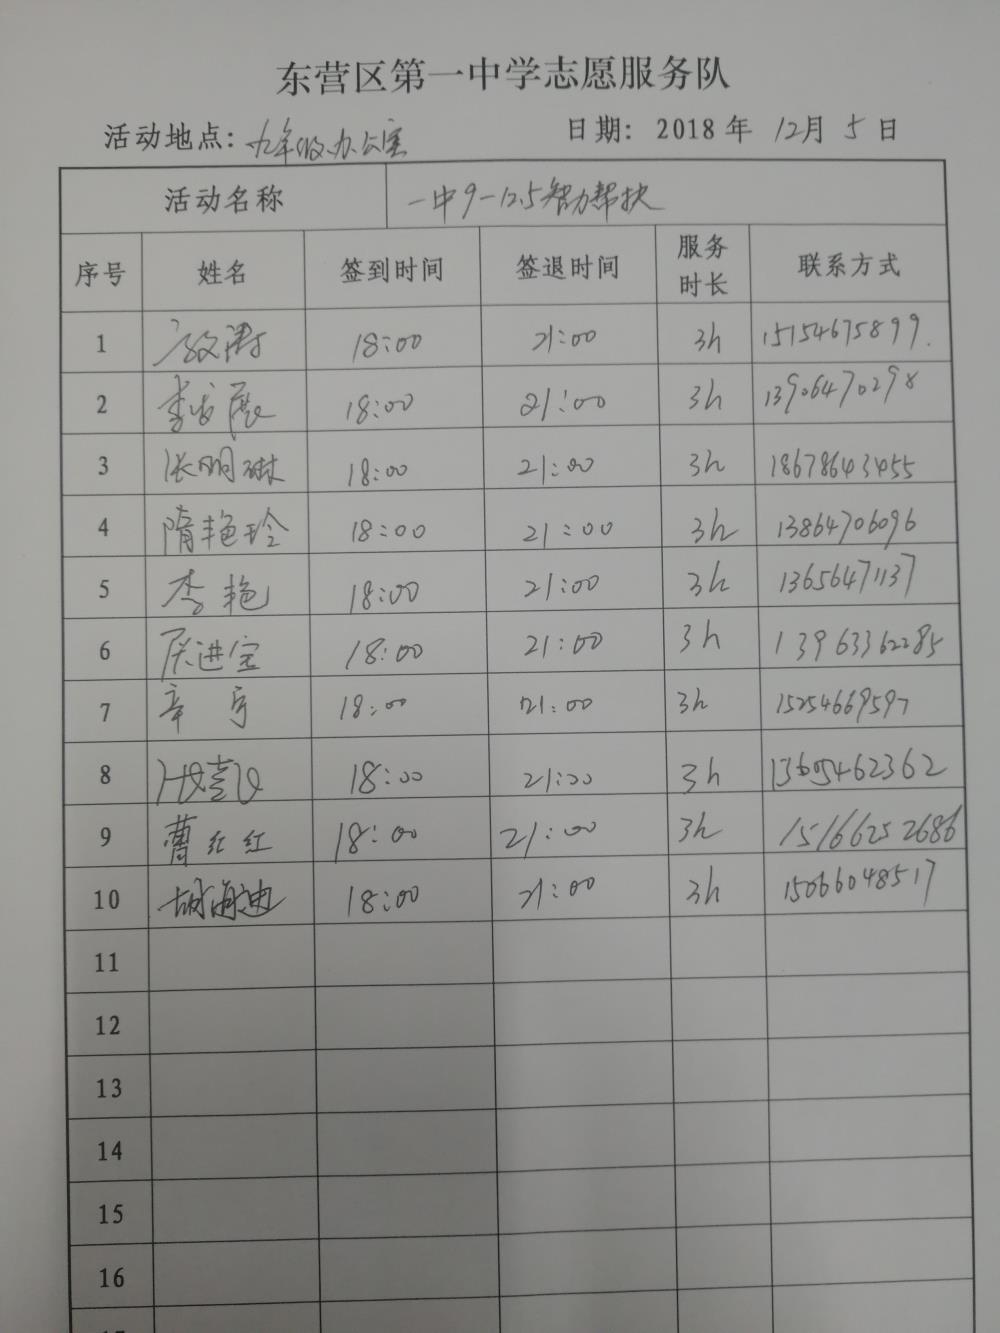 东营区第一中学志愿服务队
活动地点：九年级办公室 日期：2018年 12月 5日
活动名称 一中9-12.5智力帮扶
序号 姓名 签到时间 签退时间 服务时长 联系方式
1 18:00 21:00 3h 15154675899.
2 李 展 18:00 21:00 3h 13906470298
3 张明琳 18:00 21:00 3h 18678643455
4 隋艳玲 18:00 21:00 3h 13864706096
5 李艳 18:00 21:00 3h 13656471137
6 进宝 18:00 21:00 3h 13963362285
7 辛宇 18:00 21:00 3h 15254669597
8 18:00 21:00 3h 13605462362
9 曹红红 18:00 21:00 3h 15166252686
10 胡海迪 18:00 21:00 3h 15066048517
11
12
13
14
15
16